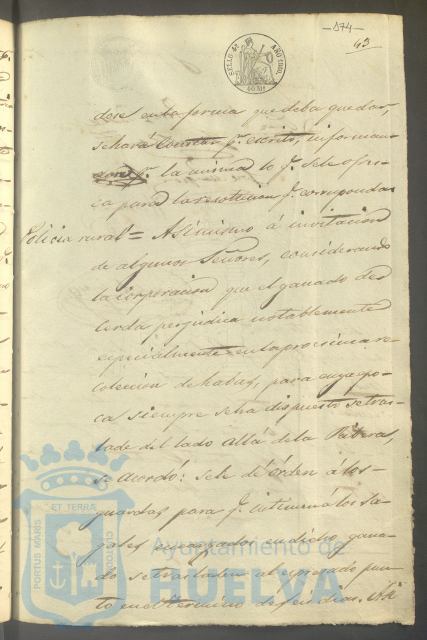 — 174 —
43
SELLO 4º AÑO 1860
40 Ms
dose en la forma que deba quedar,
se hará constar pr. escrito, informan-
pr. la misma lo qe. se le ofrez-
ca para la resolucion qe. corresponda
Policia rural = Asimismo á invitacion
de algunos Señores, considerando
la corporacion que el ganado de
Cerda perjudica notablemente
especialmente en la procsima re-
coleccion de habas, para cuya epo-
ca siempre se ha dispuesto se tras-
lade del lado allá de la Riveras,
se acordó: se le dé órden á los
guardas para qe. intimen á los za-
gales encargados en dicho gana-
do se trasladen al espresado pun-
to en el termino de
PORTUS MARIS ET TERRAE CUSTODIA
Ayuntamiento de
HUELVA